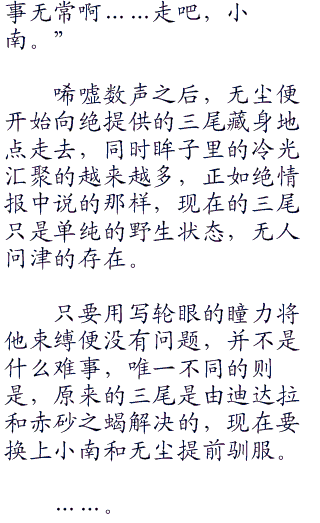 事无常啊……走吧，小
南。”
唏嘘数声之后，无尘便
开始向绝提供的三尾藏身地
点走去，同时眸子里的冷光
汇聚的越来越多，正如绝情
报中说的那样，现在的三尾
只是单纯的野生状态，无人
问津的存在。
只要用写轮眼的瞳力将
他束缚便没有问题，并不是
什么难事，唯一不同的则
是，原来的三尾是由迪达拉
和赤砂之蝎解决的，现在要
换上小南和无尘提前驯服。
……。